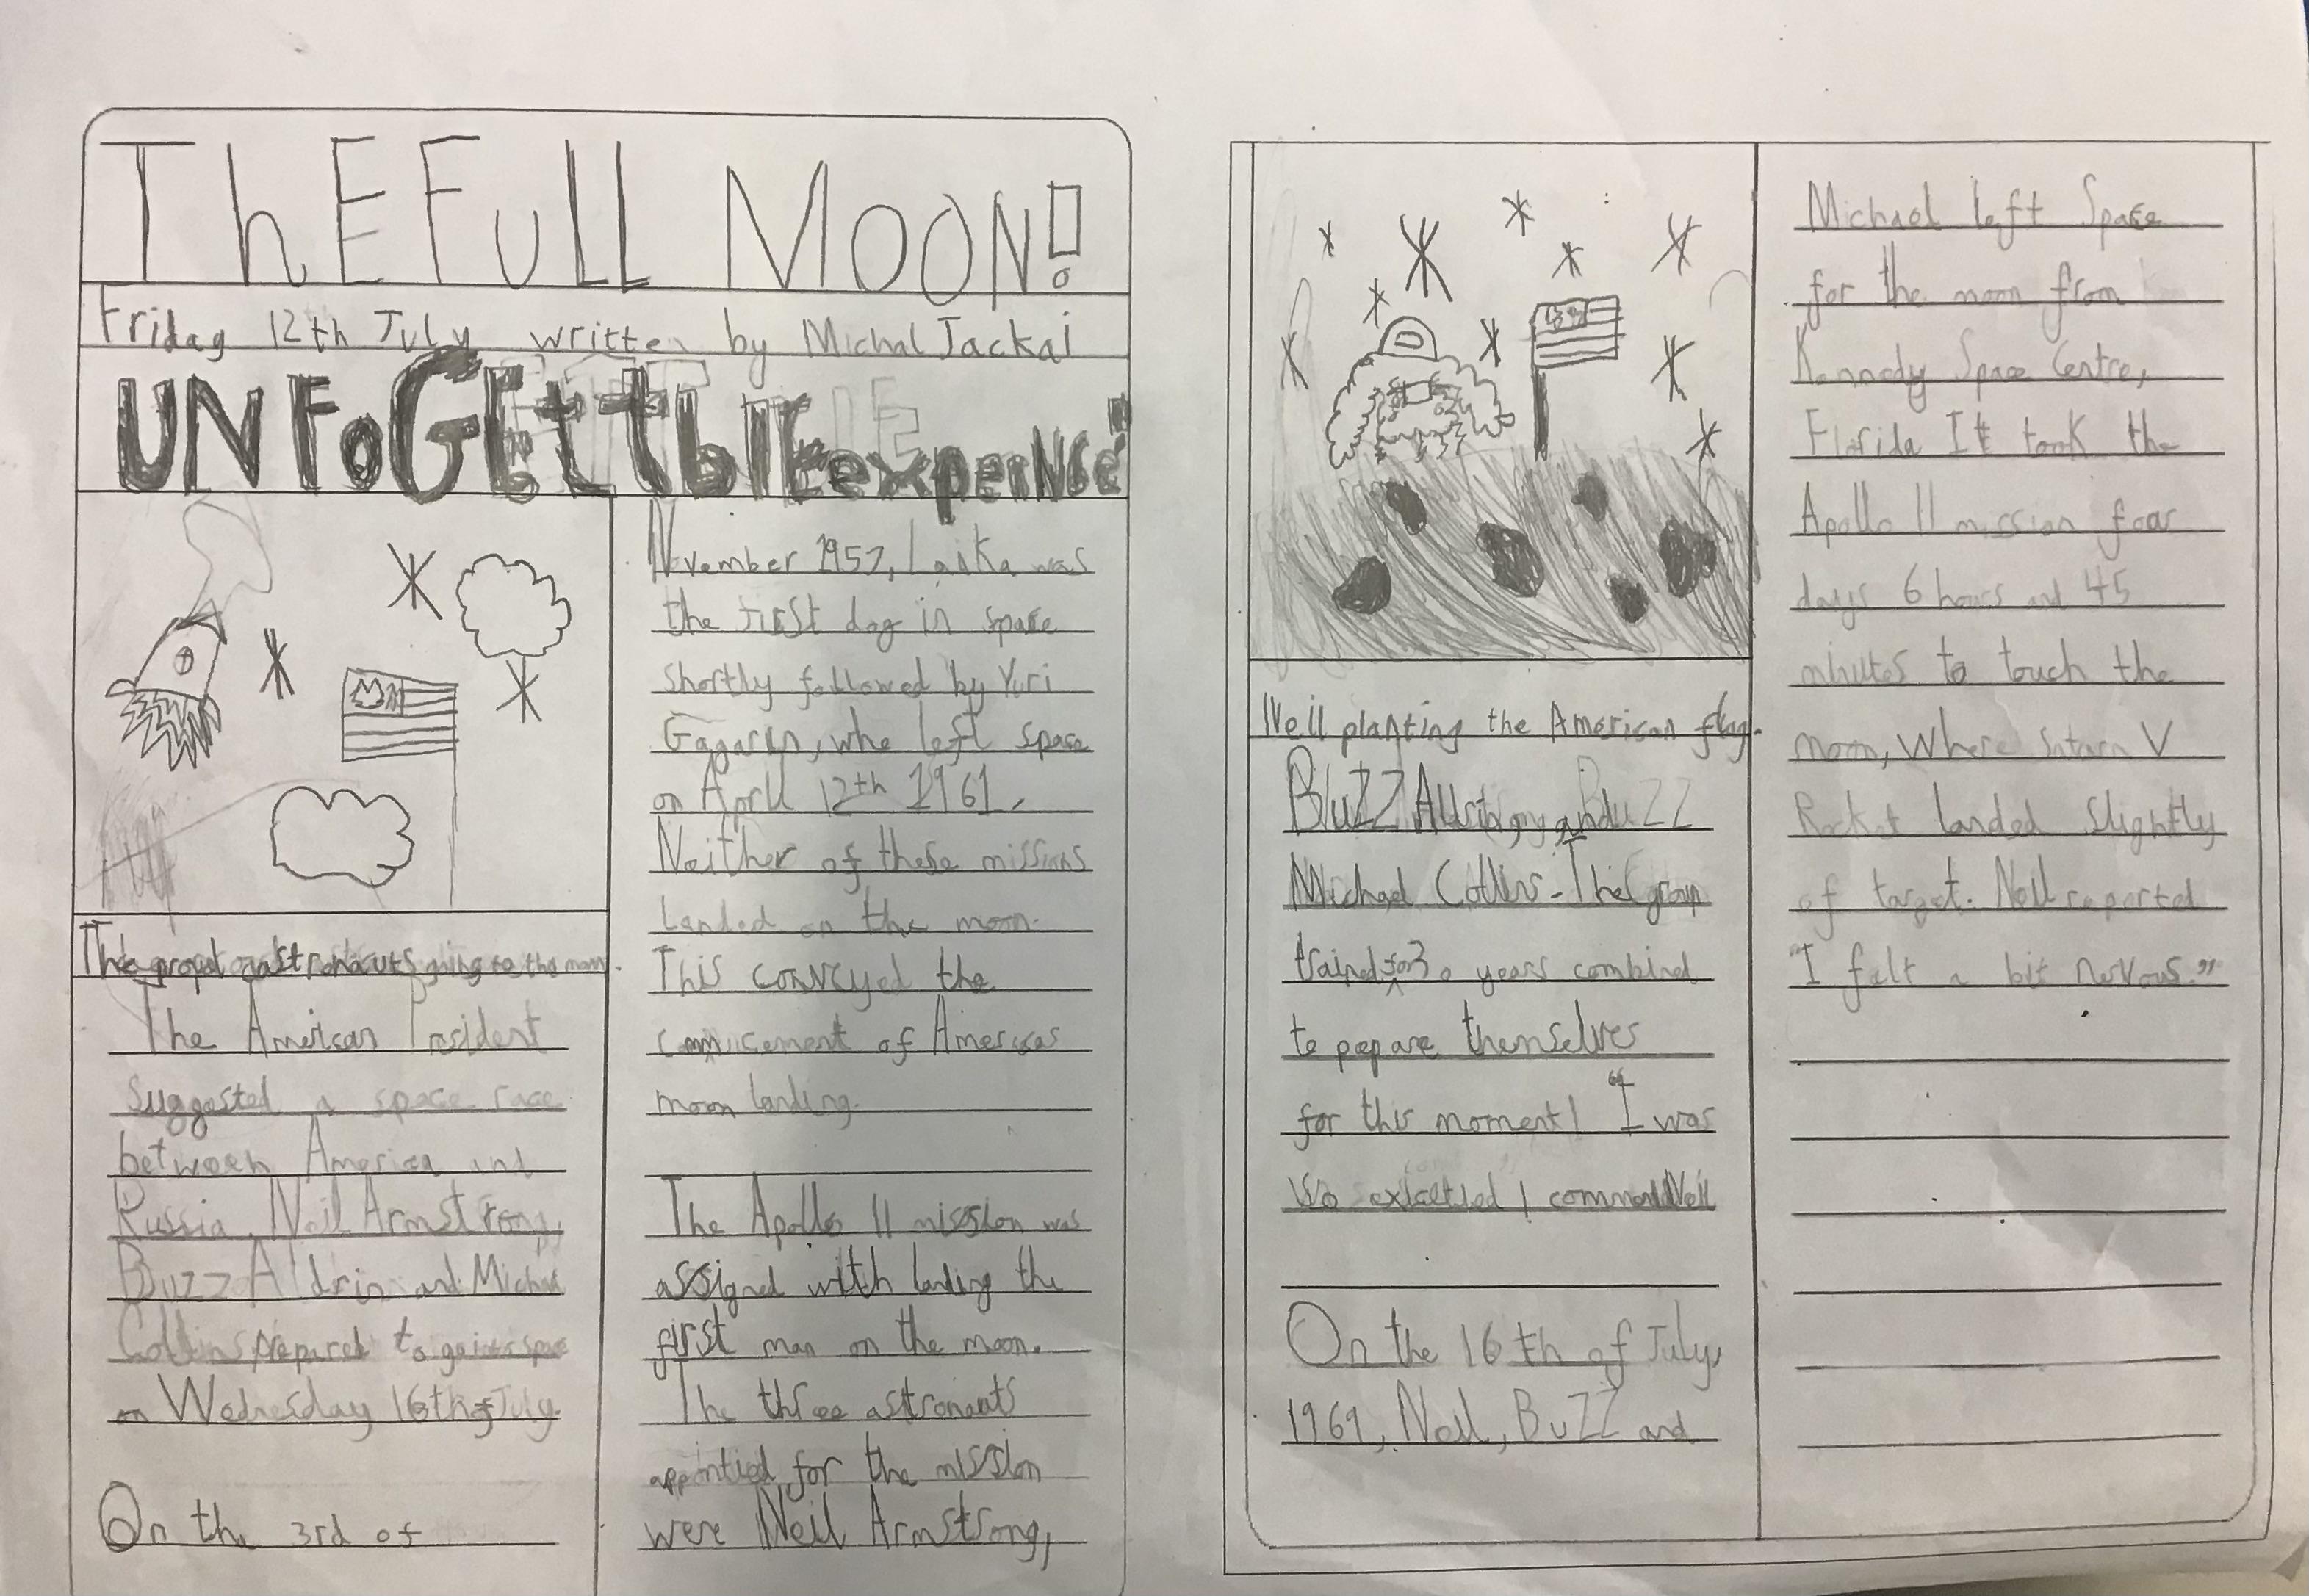 ThE FuLL MOON!
Friday 12th July written by Michal Jackai
UNFoGEttblE experiNse!
astronauts going to the moon.
The American President
Suggested a space race
between America and
Russia. Neil Armstrong,
Buzz Aldrin and Michal
Collins prepared to go into space
on Wednesday 16th of July.
On the 3rd of
November 1957, Laika was
the first dog in space
shortly followed by Yuri
Gagarin, who left space
on April 12th 1961.
Neither of these missions
landed on the moon.
This conveyed the
of Americas
moon landing.
The Apollo 11 mission was
assigned with landing the
first man on the moon.
The three astronauts
appointied for the mission
were Neil Armstrong,
Neil planting the American flag.
BuZZ and
Michael Collins. The group
trained for 30 years combined
to prepare themselves
for this moment! "I was
so ! Neil
On the 16th of July,
1969, Neil, BuZZ and
Michael left Space
for the moon from
Kennedy Space Centre,
Florida It took the
Apollo 11 mission four
days 6 hours and 45
minutes to touch the
moon, Where Saturn V
Rocket landed slightly
of target. Neil reported
"I felt a bit nervous."